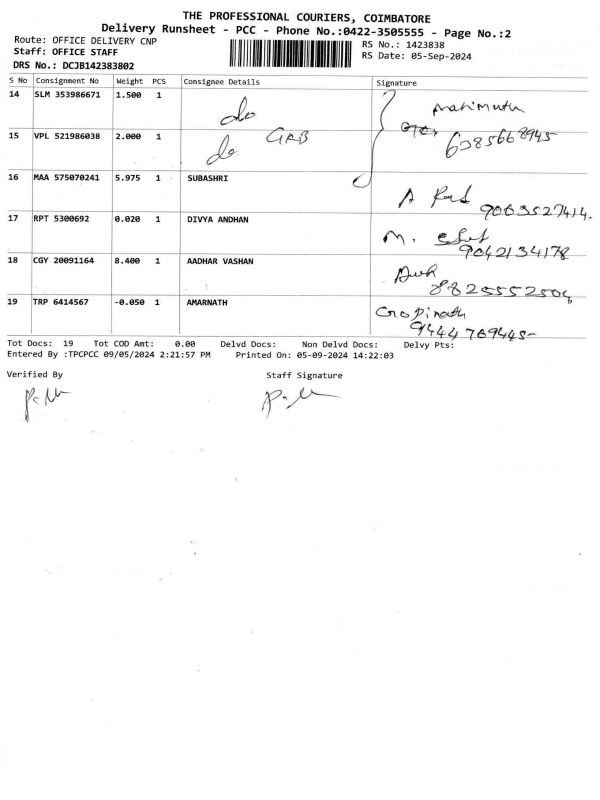 THE PROFESSIONAL COURIERS, COIMBATORE
Delivery Runsheet - PCC - Phone No.:0422-3505555 - Page No.:2
Route: OFFICE DELIVERY CNP RS No.: 1423838
Staff: OFFICE STAFF RS Date: 05-Sep-2024
DRS No.: DCJB142383802
S No Consignment No Weight PCS Consignee Details Signature
14 SLM 353986671 1.500 1 do
15 VPL 521986038 2.000 1 do 6385668945
16 MAA 575070241 5.975 1 SUBASHRI 9063527414.
17 RPT 5300692 0.020 1 DIVYA ANDHAN M. 9042134178
18 CGY 20091164 8.400 1 AADHAR VASHAN 8825552504
19 TRP 6414567 -0.050 1 AMARNATH Gopinath
9444769445-
Tot Docs: 19 Tot COD Amt: 0.00 Delvd Docs: Non Delvd Docs: Delvy Pts:
Entered By :TPCPCC 09/05/2024 2:21:57 PM Printed On: 05-09-2024 14:22:03
Verified By Staff Signature